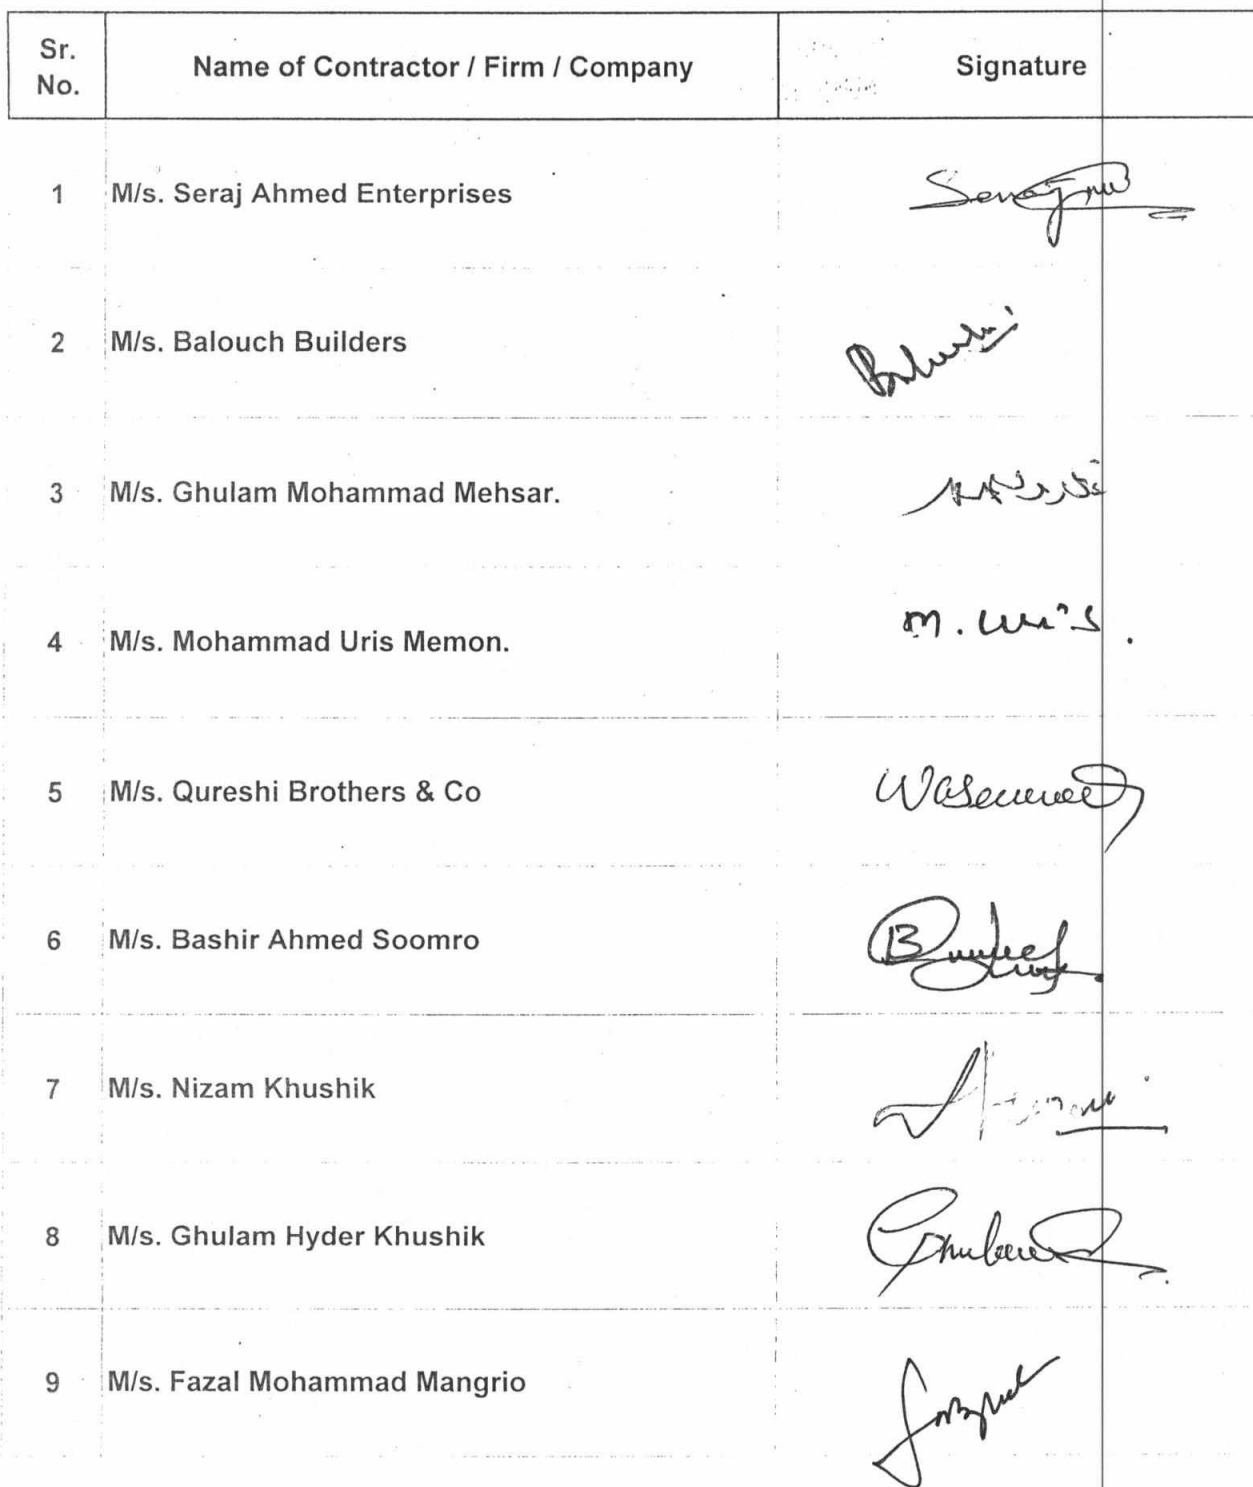 Sr. No.
Name of Contractor / Firm / Company
Signature
1 M/s. Seraj Ahmed Enterprises
2 M/s. Balouch Builders
3 M/s. Ghulam Mohammad Mehsar.
4 M/s. Mohammad Uris Memon. M. Uris.
5 M/s. Qureshi Brothers & Co
6 M/s. Bashir Ahmed Soomro
7 M/s. Nizam Khushik
8 M/s. Ghulam Hyder Khushik
9 M/s. Fazal Mohammad Mangrio